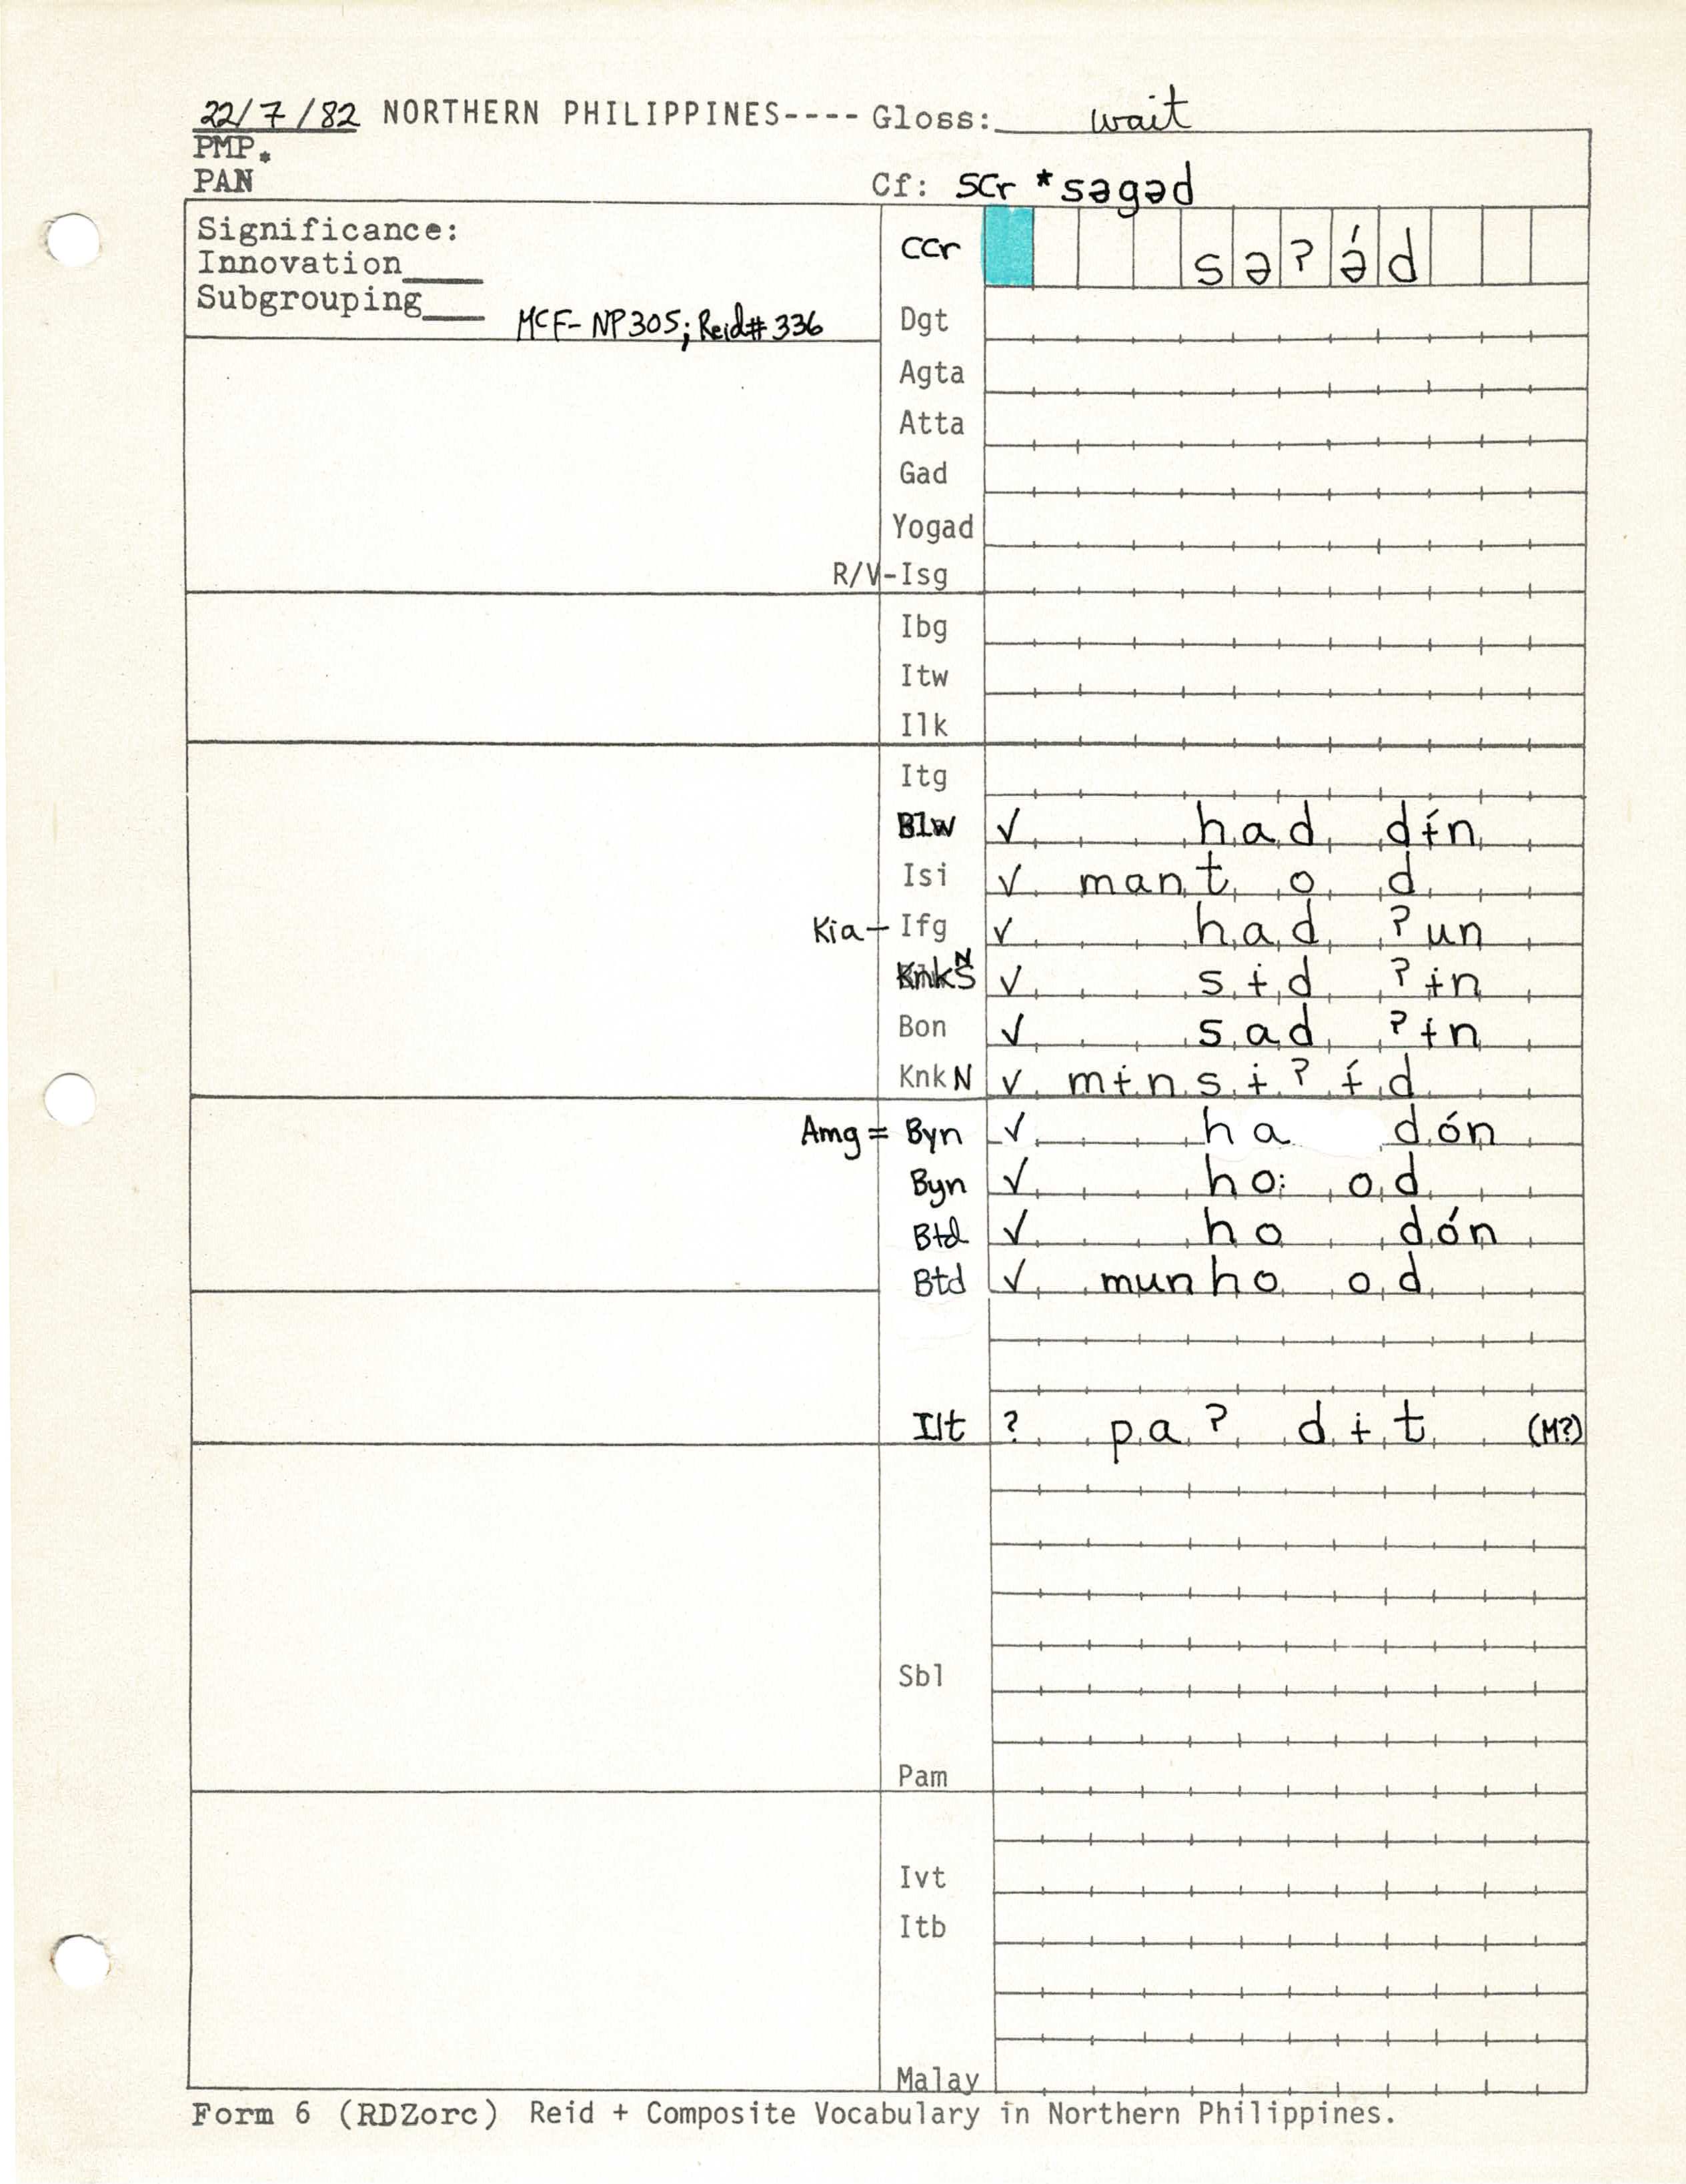 22/7/82 NORTHERN PHILIPPINES---- Gloss: wait
PMP.
PAN Cf: SCr *səgəd
Significance:
Innovation___
Subgrouping___
MCF- NP305; Reid# 336
CCr səʔə́d
Dgt
Agta
Atta
Gad
Yogad
R/V-Isg
Ibg
Itw
Ilk
Itg
Blw ✓ had dɨ́n
Isi ✓ mant o d
Kia-Ifg ✓ had ʔun
ʔɨn
Bon ✓ sad ʔɨn
Knk N ✓ mɨnsɨʔɨ́d
Amg = Byn ✓ ha dón
Byn ✓ ho: od
Btd ✓ ho dón
Btd ✓ munho od
Ilt ? paʔ dɨt (M?)
Sbl
Pam
Ivt
Itb
Malay
Form 6 (RDZorc) Reid + Composite Vocabulary in Northern Philippines.